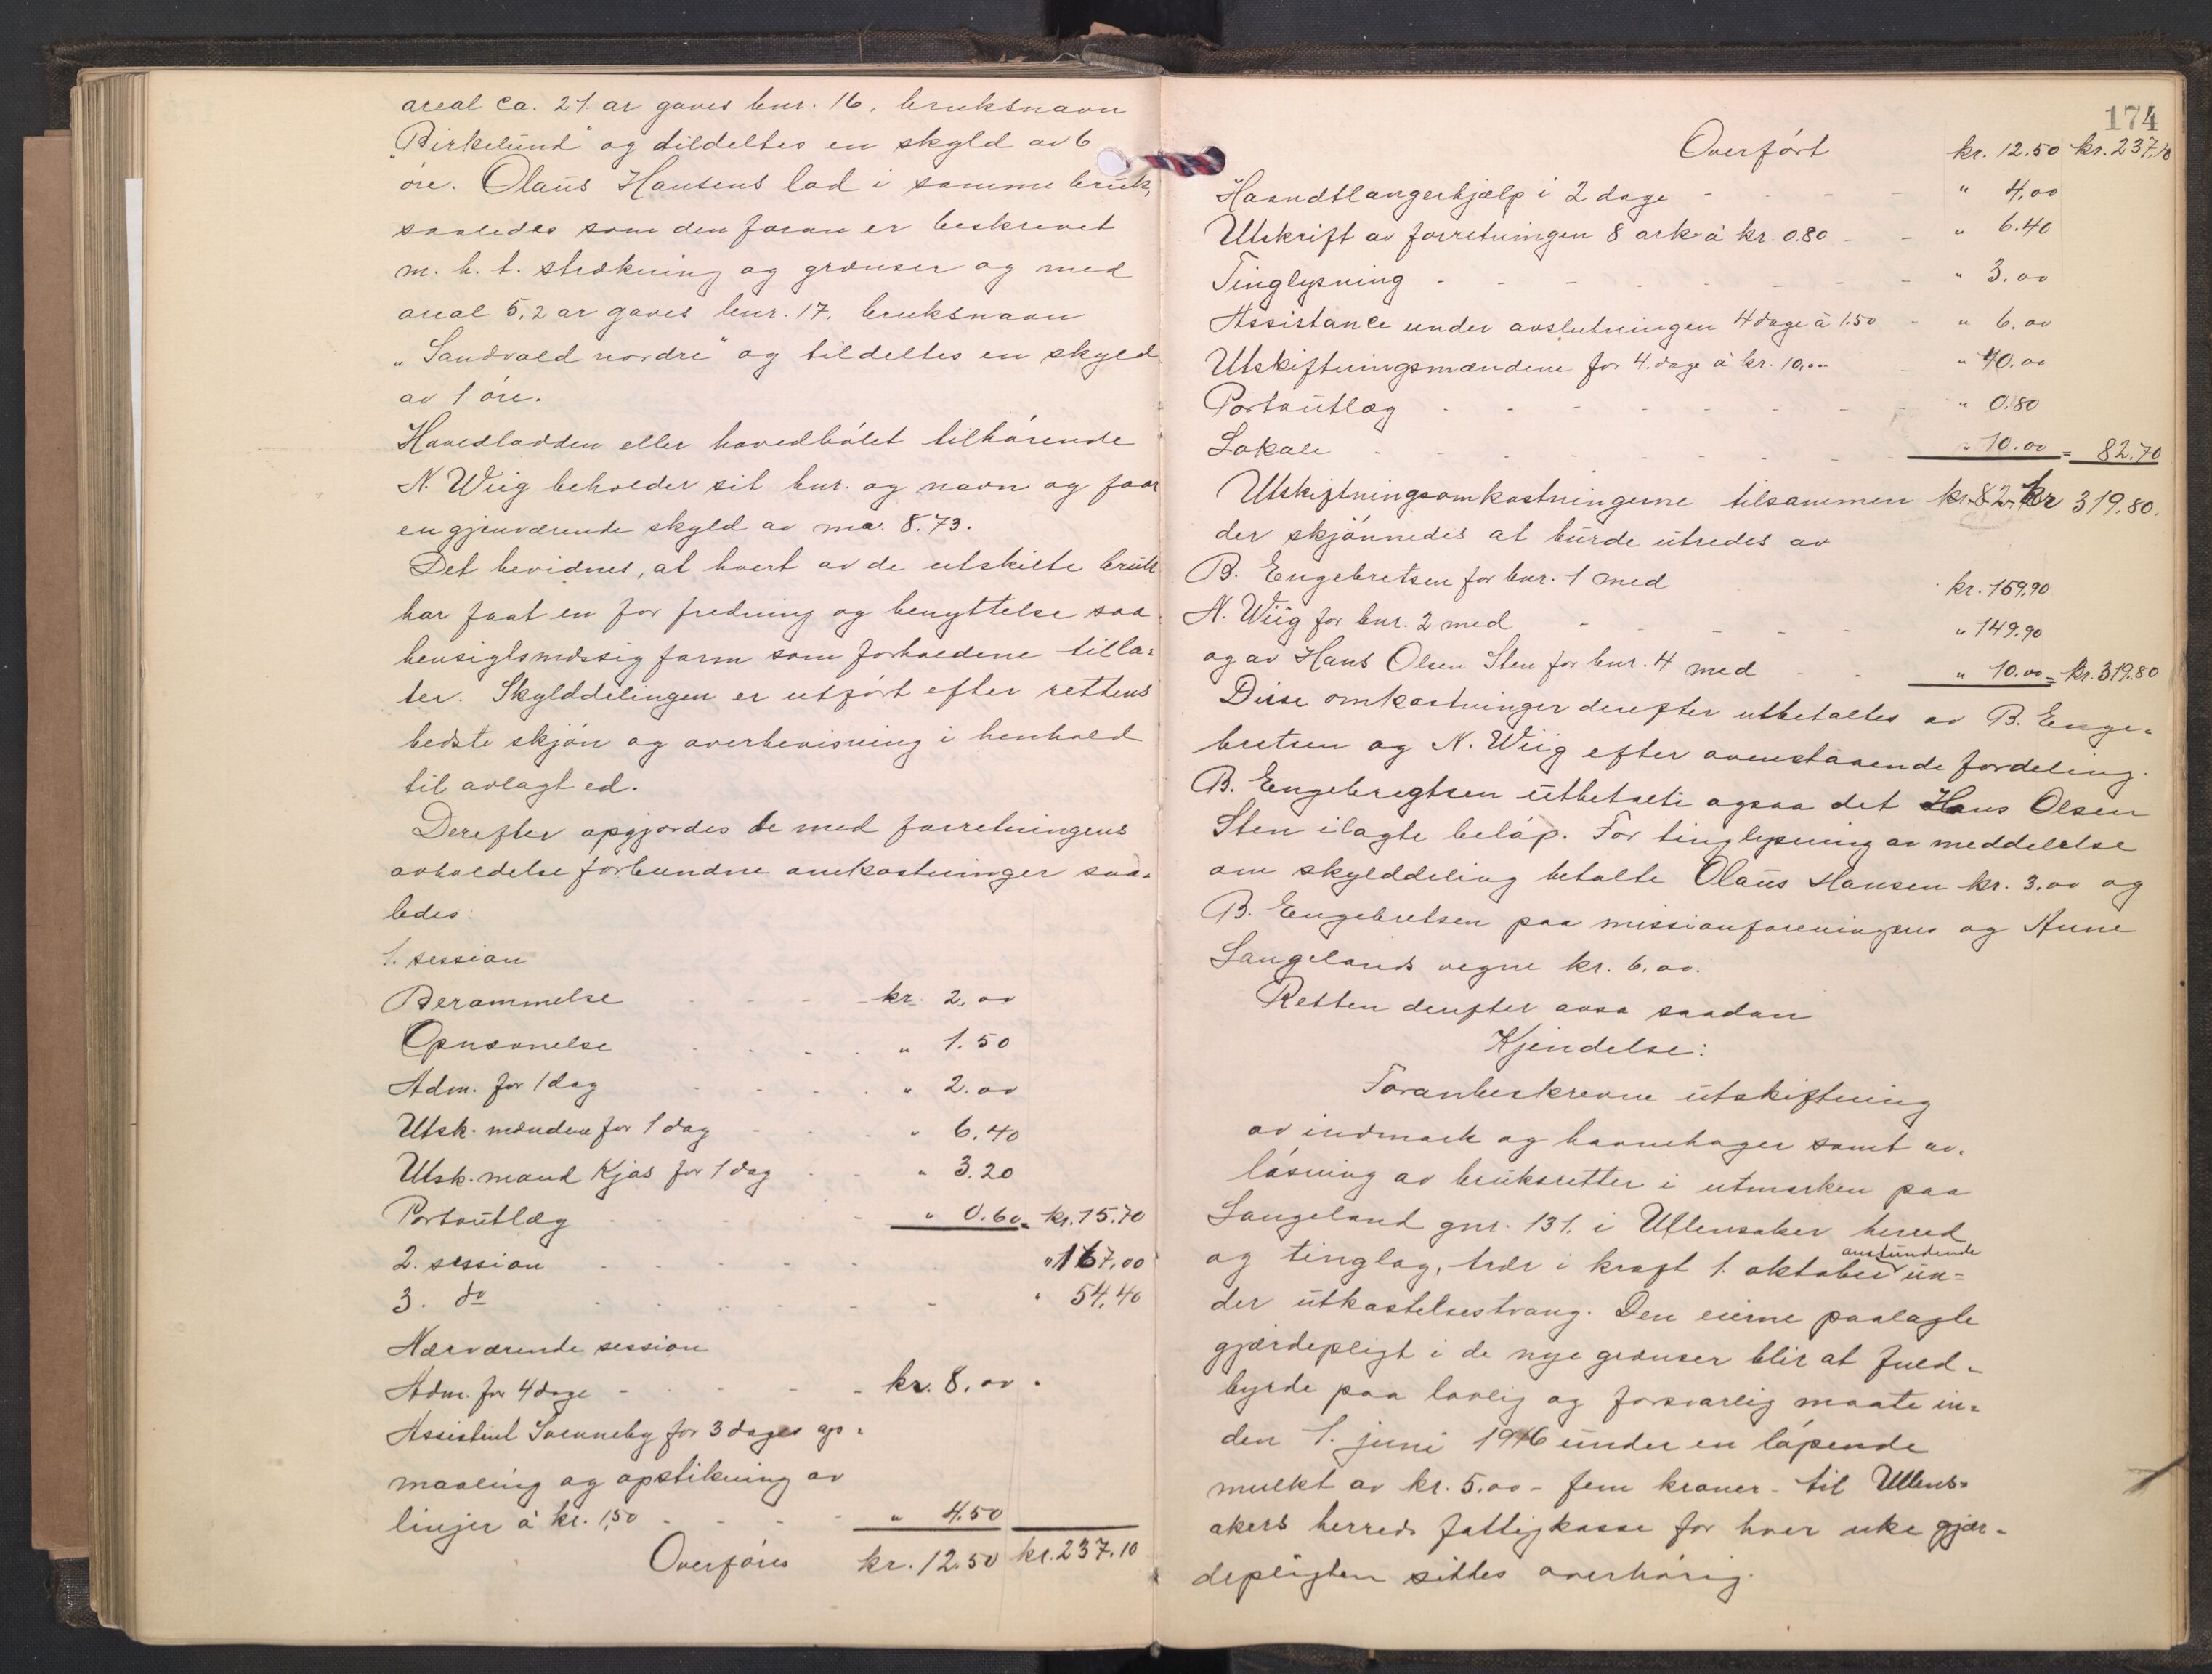 areal ca. 21. ar gaves bnr. 16, bruksnavn
„Birkelund" og tildeltes en skyld av 6
øre. Olaus Hansens lod i samme bruk,
saaledes som den foran er beskrevet
m. h. t. strækning og grænser og med
areal 5,2 ar gaves bnr. 17, bruksnavn
„Sandvold nordre" og tildeltes en skyld
av 1 øre.
Hovedlodden eller hovedbølet tilhørende
N. Wiig beholder sit bnr. og navn og faar
en gjenværende skyld av ma. 8.73.
Det bevidnes, at hvert av de utskilte bruk
har faat en for fredning og benyttelse saa
hensigtsmæssig form som forholdene tilla=
ter. Skylddelingen er utført efter rettens
bedste skjøn og overbevisning i henhold
til avlagt ed.
Derefter opgjordes de med forretningens
avholdelse forbundne omkostninger saa=
ledes:
1. session
Berammelse - - - - kr. 2.00
Opnævnelse - - - - " 1.50
Adm. for 1 dag - - - - " 2.00
Utsk. mændene for 1 dag - - - " 6.40
Utsk. mand Kjos for 1 dag - - " 3.20
Portoutlæg - - - - " 0.60 = kr. 15.70
2. session - - - - - - " 167,00
3. do - - - - - - " 54.40
Nærværende session
Adm. for 4 dage - - - - - kr. 8,00 .
Assistent Svenneby for 3 dages op=
maaling og opstikning av
linjer à kr. 1,50 - - - - " 4.50
Overføres kr. 12.50 kr. 237.10
174
Overført kr. 12.50 kr. 237,10
Haandtlangerhjælp i 2 dage - - - - " 4,00
Utskrift av forretningen 8 ark à kr. 0.80 - - " 6.40
Tinglysning - - - - - - - - " 3.00
Assistance under avslutningen 4 dage à 1.50 - " 6.00
Utskiftningsmændene for 4. dage à kr. 10,00 - " 40.00
Portoutlæg - - - - - - - - " 0.80
Lokale - - - - - - - - " 10.00 = 82.70
Utskiftningsomkostningerne tilsammen kr. 82. kr 319.80.
der skjønnedes at burde utredes av
B. Engebretsen for bnr. 1 med kr. 159,90
N. Wiig for bnr. 2 med - - - - - " 149.90
og av Hans Olsen Sten for bnr. 4 med - - " 10.00 = kr. 319.80
Disse omkostninger derefter utbetaltes av B. Enge=
bretsen og N. Wiig efter ovenstaaende fordeling.
B. Engebregtsen utbetalte ogsaa det Hans Olsen
Sten ilagte beløp. For tinglysning av meddelelse
om skylddeling betalte Olaus Hansen kr. 3.00 og
B. Engebretsen paa missionforeningens og Anne
Langelands vegne kr. 6.00.
Retten derefter avsa saadan
Kjendelse:
Foranbeskrevne utskiftning
av indmark og havnehager samt av=
løsning av bruksretter i utmarken paa
Langeland gnr. 131, i Ullensaker herred
og tinglag, træt i kraft 1. oktober anstundende un=
der utkastelsestvang. Den eierne paalagte
gjærdepligt i de nye grænser blir at fuld=
byrde paa lovlig og forsvarlig maate in=
den 1. juni 1916 under en løpende
mulkt av kr. 5.00 - fem kroner - til Ullens=
akers herreds fattigkasse for hver uke gjær=
depligten sittes overhørig.